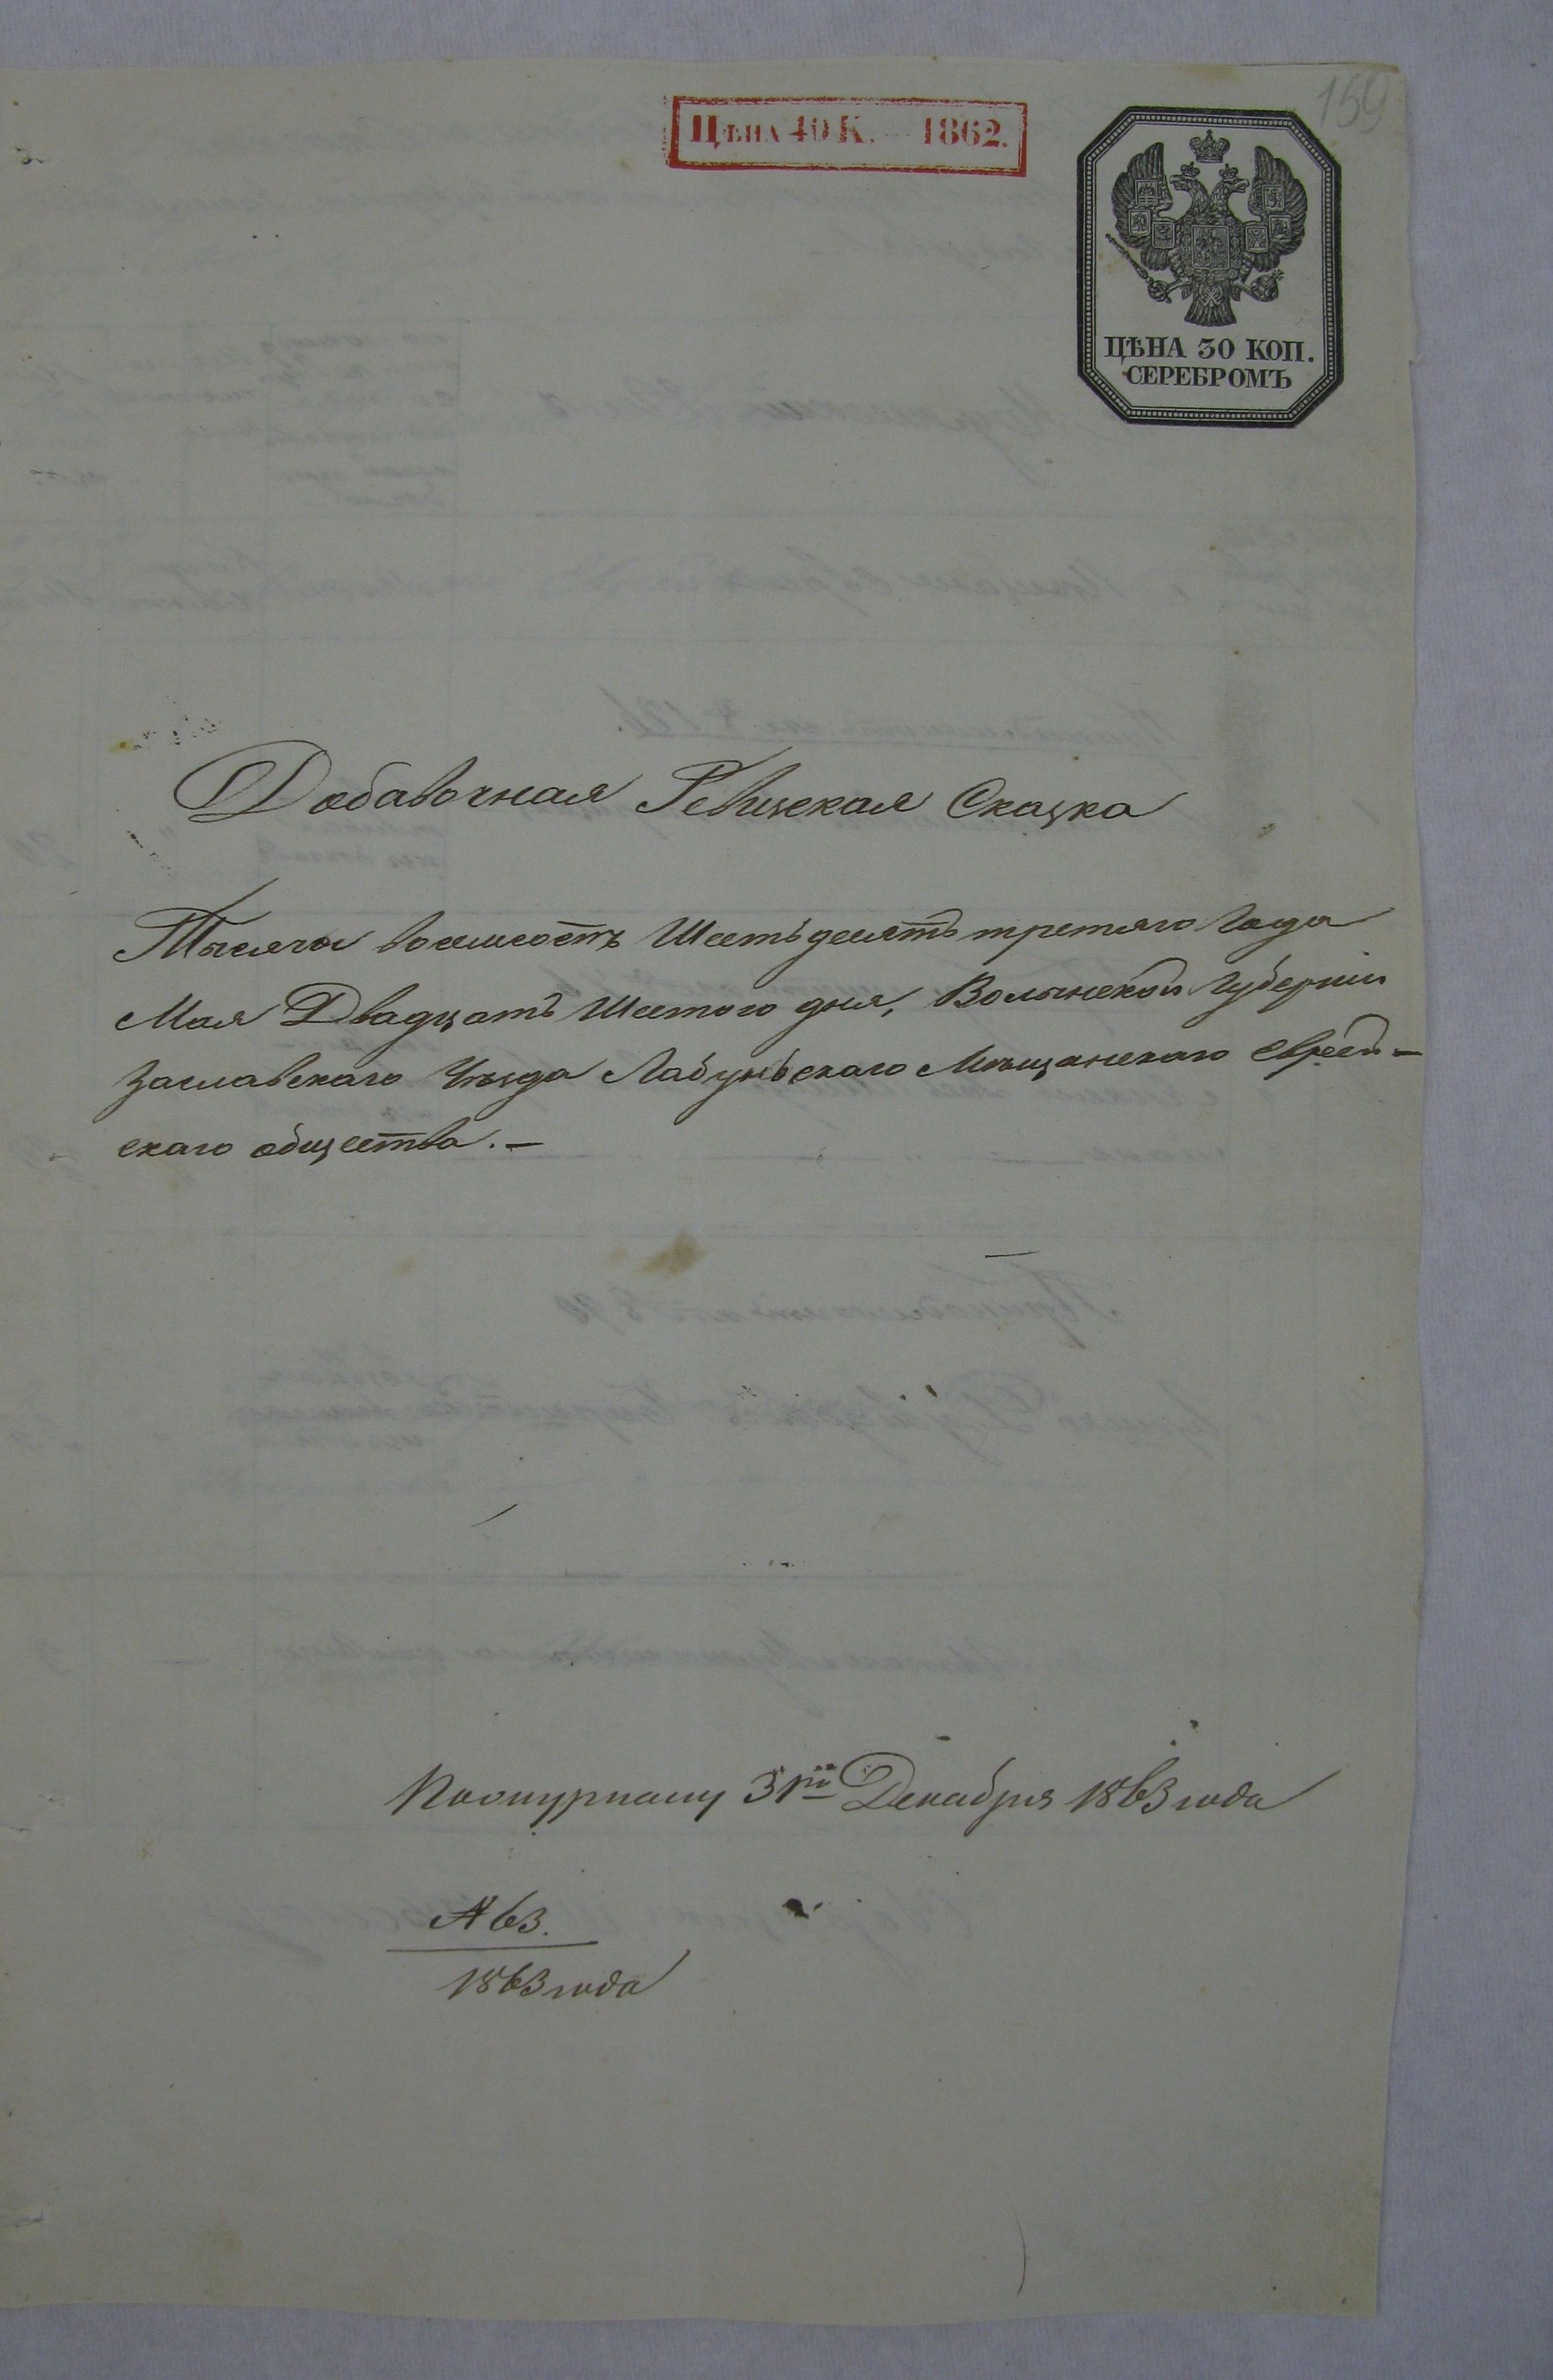 159
Цѣна 40 К. — 1862.
ЦѢНА 30 КОП.
СЕРЕБРОМЪ
Добавочная Ревизская Сказка
Тысяча восемсотъ Шестьдесятъ третяго Года
Мая Двадцать Шестого дня, Волынской Губерніи
Заславскаго Уѣзда Лабуньскаго Мѣщанскаго Еврей-
скаго общества. —
По журналу 31го Декабря 1863 года
№ 63.
1863 года